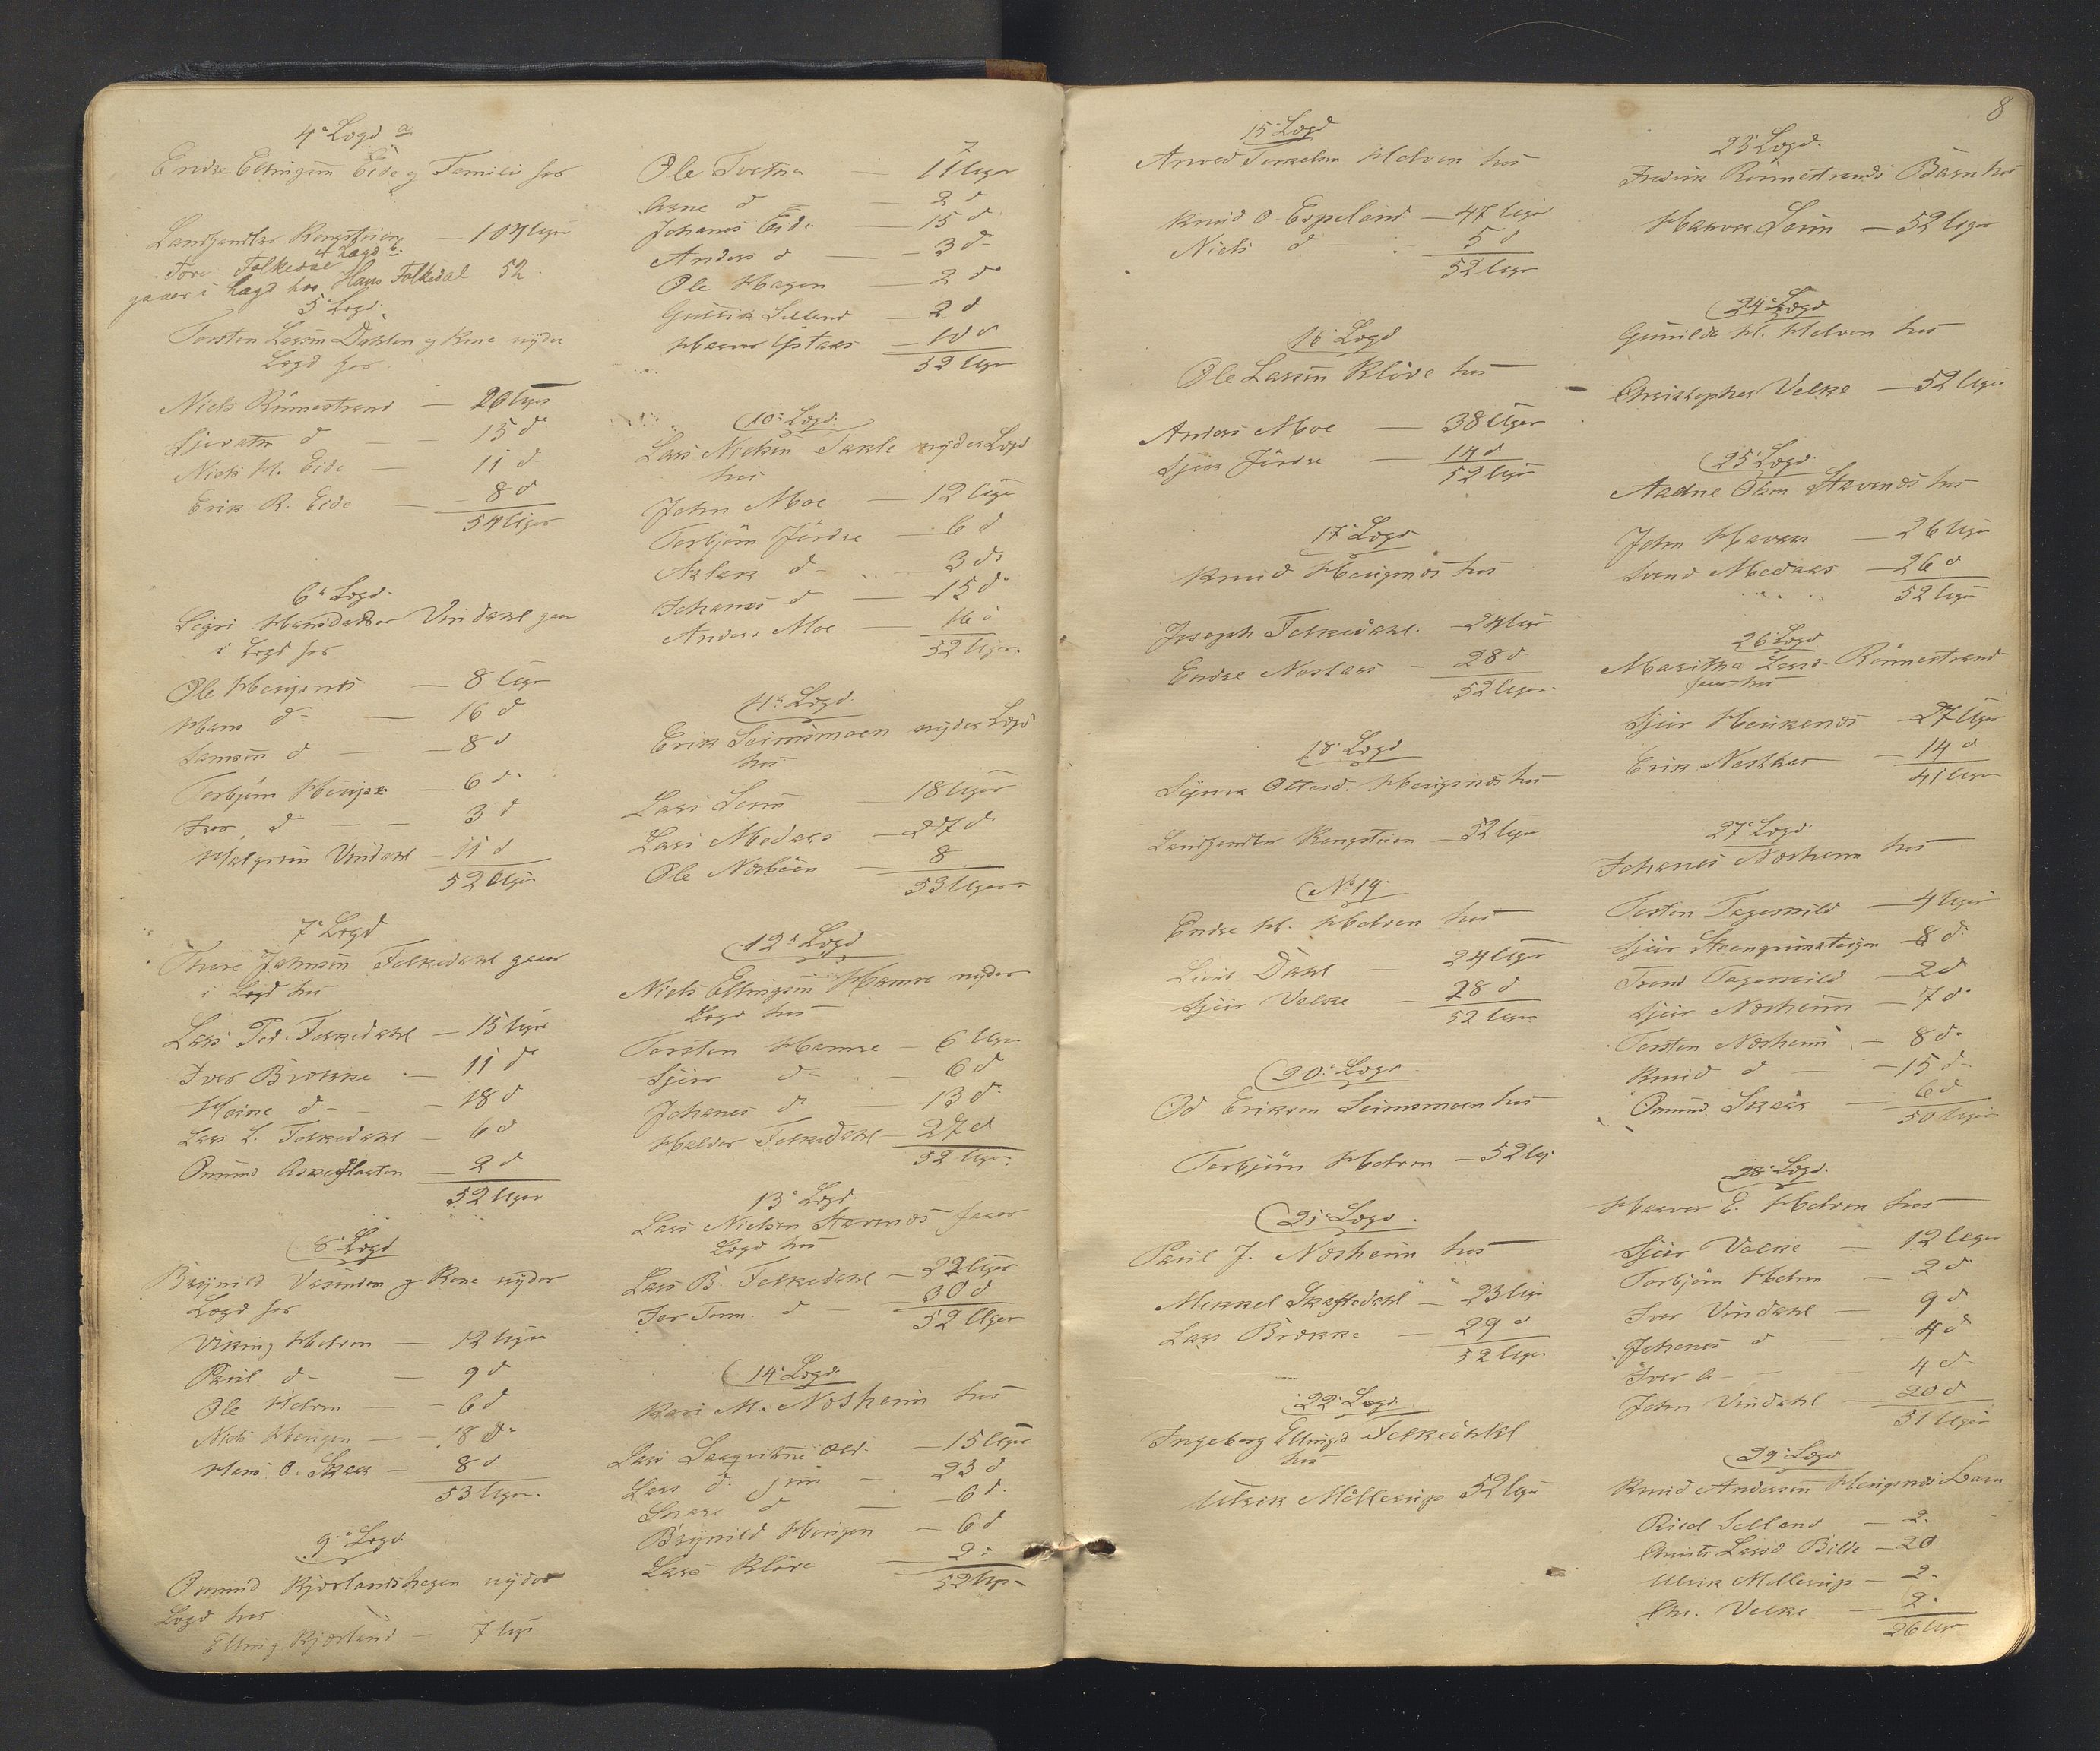 4de Lægd a
Endre Ellingsen Eide og Familie hos
Landhandler Kongstein — 104 Uger
4 Lægd b.
Tore Folkedal
gaaer i Lægd hos Hans Folkedal 52.
5te Lægd.
Torsten Larssen Dahlen og Kone nyder
Lægd hos
Niels Rönnestrand — 20 Uger
Sjovatn do — 15 do
Niels H. Eide — 11 do
Erik R. Eide — 8 do
54 Uger
6te Lægd.
Sigri Hansdatter Vindahl gaar
i Lægd hos
Ole Heigends — 8 Uger
Hans do — 16 do
Samson do — 8 do
Torbjörn Heigen — 6 do
Iver do — 3 do
Halgrim Vindahl — 11 do
52 Uger
7de Lægd
Thore Johnsen Folkedahl gaaer
i Lægd hos
Lars Ped. Folkedahl — 15 Uger
Iver Brække — 11 do
Heine do — 18 do
Lars L. Folkedahl — 6 do
Omund — 2 do
52 Uger
8de Lægd
Brynild og Kone nyder
Lægd hos
Viking Helven — 12 Uger
Paul do — 9 do
Ole Helven — 6 do
Niels Heigen — 18 do
Hans O. Skaar — 8 do
53 Uger.
9de Lægd.
Omund Kjærlandshagen nyder
Lægd hos
Elling Kjærland — 7 Uger
7
Ole Tveitna — 11 Uger
Arne do — 2 do
Johanes Eide — 15 do
Anders do — 3 do
Ole Hagen — 2 do
Guttik Selland — 2 do
Haavar Ystaas — 10 do
52 Uger
10de Lægd.
Lars Nielsen Takle nyder Lægd
hos
John Moe — 12 Uger
Torbjörn Jördre — 6 do
Aslak do — 3 do
Johanes do — 15 do
Anders Moe — 16 do
52 Uger.
11te Lægd.
Erik Seimsmoen nyder Lægd
hos
Lars Seim — 18 Uger
Lars Medaas — 27 do
Ole — 8
53 Uger.
12te Lægd
Niels Ellingsen Hamre nyder
Lægd hos
Torsten Hamre — 6 Uger
Sjur do — 6 do
Johanes do — 13 do
Haldor Folkedahl — 27 do
52 Uger.
13de Lægd.
Lars Nielsen Havnås faaer
Lægd hos
Lars B. Folkedahl — 22 Uger
do — 30 do
52 Uger
14de Lægd
Kari M. Nesheim hos
Lars Laaqvitne æld. — 15 Uger
Lars do jun — 23 do
do — 6 do
Brynild Heigen — 6 do
Lars Klöve — 2 do
52 Uger
15de Lægd
Arved Torkelsen Helven hos
Knud O. Espeland — 47 Uger
Niels do — 5 do
52 Uger
16de Lægd
Ole Larssen Klöve hos
Anders Moe — 38 Uger
Sjur Jördre — 14 do
52 Uger
17de Lægd
Knud Heigends hos
Joseph Folkedahl. — 24 Uger
Endre Nestaas — 28 do
52 Uger.
18de Lægd
Signe Ottersd. Heigends hos
Landhandler Kongstein — 52 Uger
No 19.
Endre H. Helven hos
Dahl — 24 Uger
Sjur Velke — 28 do
52 Uger
20de Lægd
Od Eriksen Seimsmoen hos
Torbjörn Helven — 52 Ug
21de Lægd.
Paul J. Nesheim hos
Mikkel Skaftedahl — 23 Uger
Lars Brække — 29 do
52 Uger
22de Lægd.
Ingeborg Ellingsd Folkedahl
hos
Ulrik Mellerup 52 Uger
8
23de Lægd.
Fredrik Rönnestrands Barn hos
Haavar Seim — 52 Uger
24de Lægd
Gunnilda H. Helven hos
Christopher Velke — 52 Uger
25de Lægd.
Aadne Olsen Havnås hos
John Havaas — 26 Uger
Svend Medaas — 26 do
52 Uger
26de Lægd
Maritha Larsd. Rönnestrand
faar hos
Sjur Heigends — 27 Uger
Erik — 14 do
41 Uger
27de Lægd.
Johanes Nesheim hos
Torsten Tegenvild — 4 Uger
Sjur Steengrimsteigen — 8 do
Trond Tegenvild — 2 do
Sjur Nesheim — 7 do
Torsten Nesheim — 8 do
Knud do — 15 do
Omund Skaar — 6 do
50 Uger
28de Lægd.
Haavar E. Helven hos
Sjur Velke — 12 Uger
Torbjörn Helven — 2 do
Iver Vindahl — 9 do
Johanes do — 4 do
Iver — 4 do
John Vindahl — 20 do
51 Uger
29de Lægd
Knud Anderssen Heigends Barn
Selland — 2.
Christi Larsd Bilde — 20
Ulrik Mellerup — 2.
Chr. Velke — 2.
26 Uger